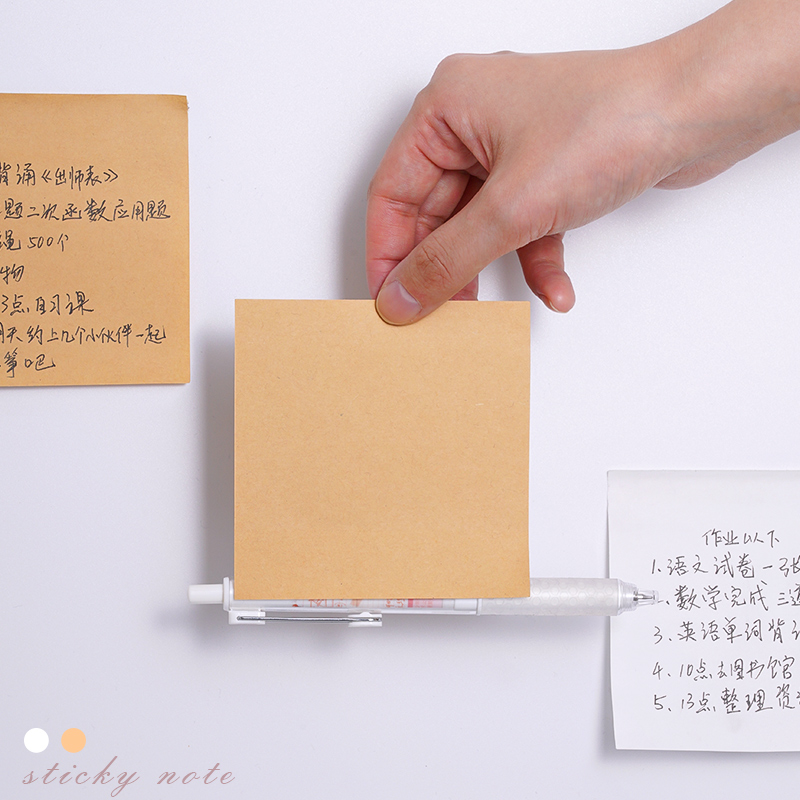 背诵《出师表》
题二次函数应用题
绳500个
物
3点自习课
天约上几个小伙伴一起
筝吧
作业以下
1.语文试卷一张
数学完成三
3.英语单词背
4.10点去图书馆
5.13点整理资
sticky note